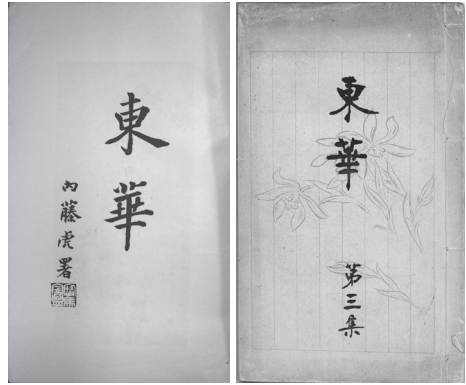 東華
内藤虎署
東華
第三集